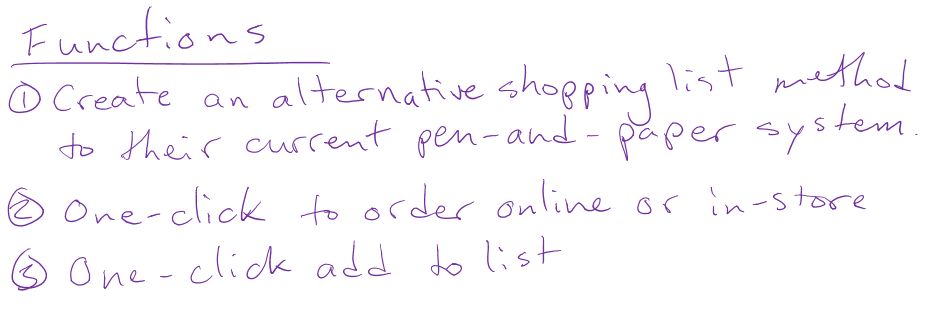 Functions
① Create an alternative shopping list method
to their current pen-and-paper system.
② One-click to order online or in-store
③ One-click add to list